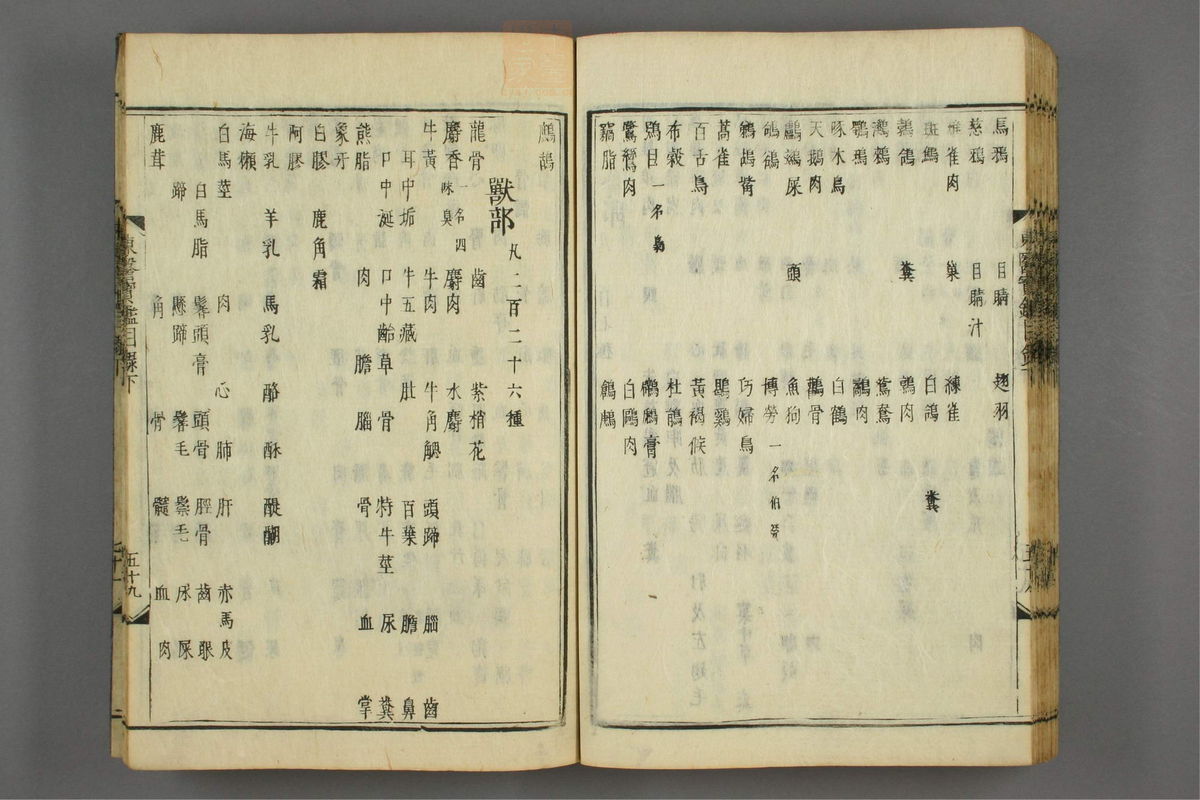 烏鴉 目睛 翅羽
慈鴉 目睛汁
雄雀肉 巢 練雀
斑鷦 白鴿 糞
鵓鴿 糞 鶉肉
鸂鶒 鴛鴦
鸜鴉 鷸肉
啄木鳥 白鶴
天鵝肉 鸛骨
鸕鷀屎 頭 魚狗
鴝鵒 博勞 一名伯勞
鵜鴣觜 巧婦鳥
蒿雀 鶡雞
百舌鳥 黃褐候
布穀 杜鵑
鴞目 一名梟 鸊鷉膏
鸑鷟肉 白鷗肉
竊脂
鷓鴣
獸部 凡二百二十六種
龍骨 齒 紫梢花
麝香 一名四味臭 麝肉 水麝
牛黃 牛肉 牛角䚡 頭蹄 腦 齒
耳中垢 牛五藏 肚 百葉 膽 鼻
口中涎 口中齝草 骨 特牛莖 尿 糞
熊脂 肉 膽 腦 骨 血 掌
象牙
白膠 鹿角霜
阿膠
牛乳 羊乳 馬乳 酪 酥 醍醐
海獺
白馬莖 肉 心 肺 肝 赤馬皮
白馬脂 鬐頭膏 頭骨 脛骨 齒 眼
蹄 懸蹄 鬐毛 鬃毛 尿 屎
鹿茸 角 骨 髓 血 肉
東醫寶鑑目錄下
五十九